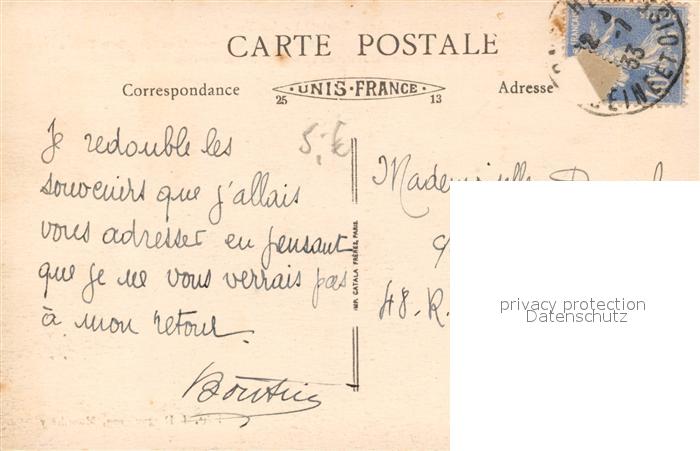 CARTE POSTALE
Correspondance
UNIS-FRANCE
25 13
Adresse
33
SEINE ET OISE
5,- €
Je redouble les
souvenirs que j'allais
vous adresser en pensant
que je ne vous verrais pas
à mon retour.
IMP. CATALA FRÈRES, PARIS
Mademoiselle
48. R.
privacy protection
Datenschutz